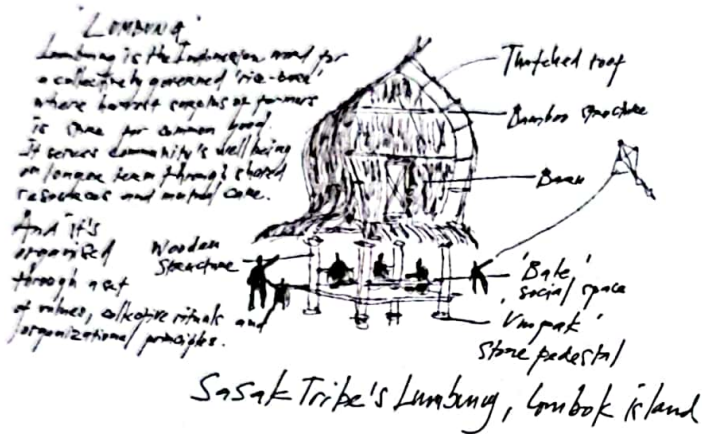 'LUMBUNG'
Lumbung is the Indonesian word for
a collectively governed 'rice-barn'
where harvest surplus of farmers
is stored for common good.
It serves community's well being
on longer term through shared
resources and mutual care.
And it's
organised
through a set
of values, collective rituals and
organizational principles.
Thatched roof
Bamboo structure
Barn
Wooden
structure
'Bale'
social space
'Umpak'
stone pedestal
Sasak Tribe's Lumbung, Lombok island